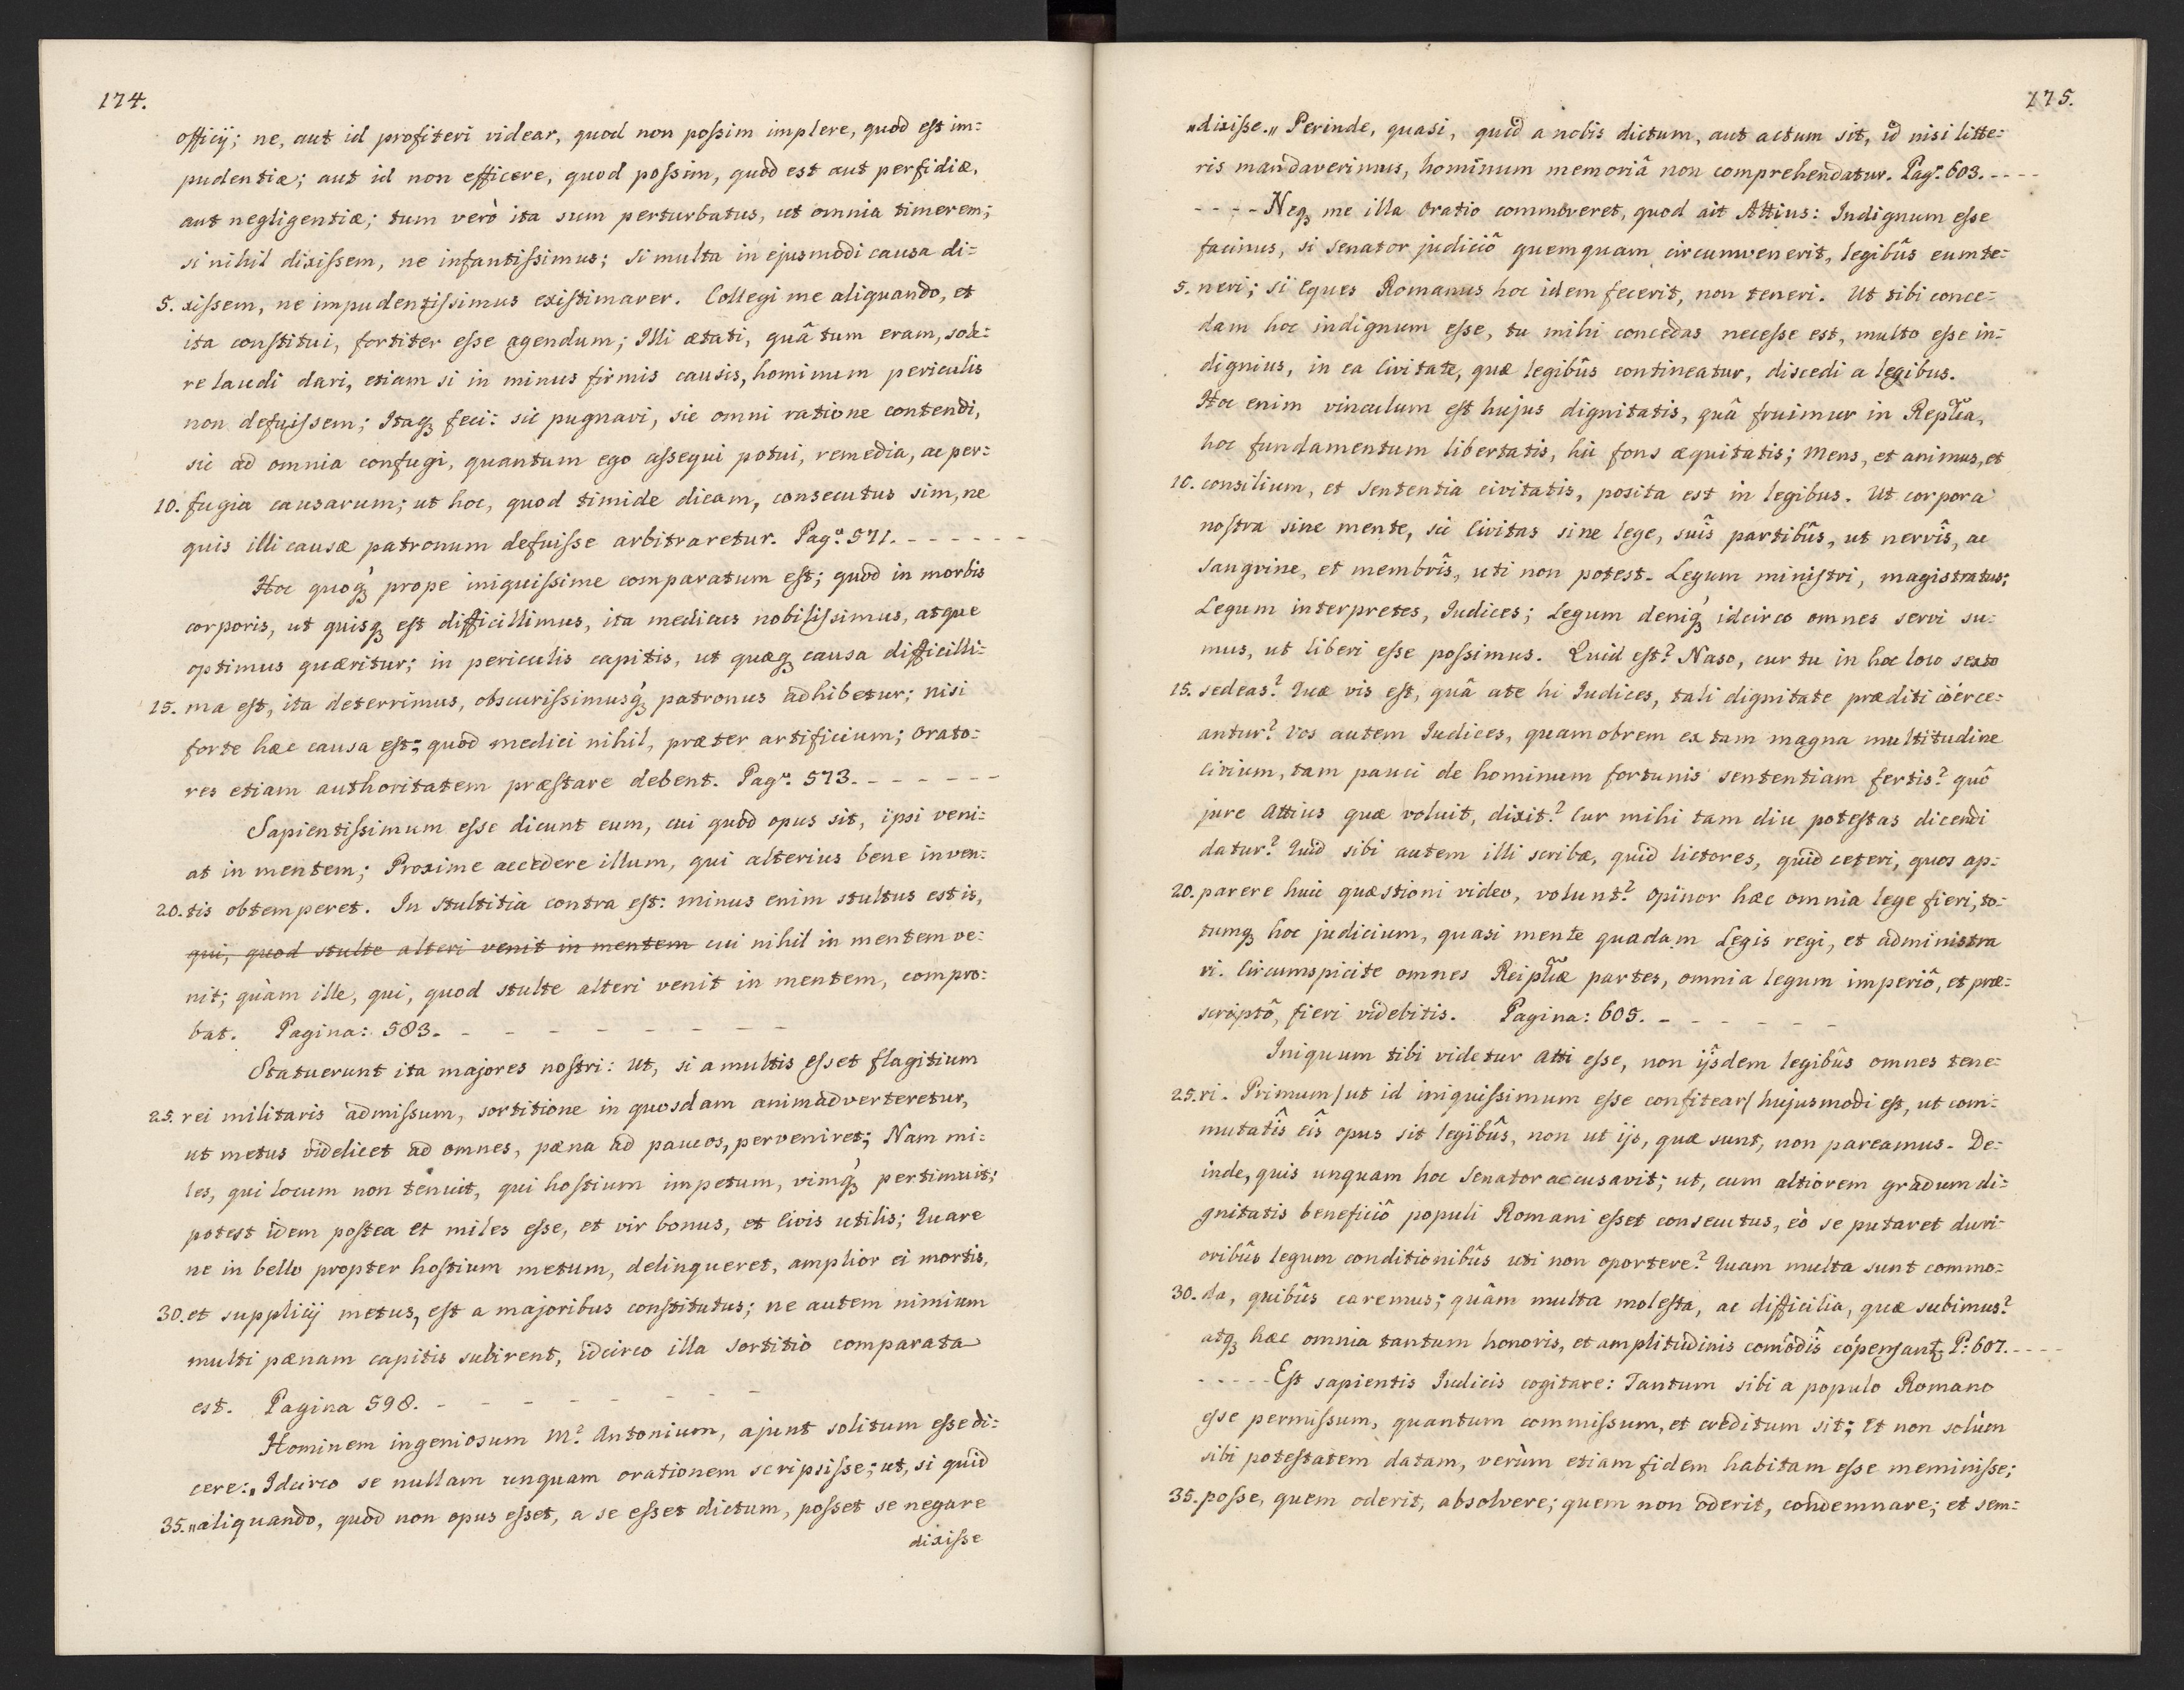 174.
officij; ne, aut id profiteri videar, quod non poßim implere, quod est im=
pudentiæ; aut id non efficere, quod poßim, quod est aut perfidiæ,
aut negligentiæ; tum verò ita sum perturbatus, ut omnia timerem;
si nihil dixißem, ne infantißimus; si multa in ejusmodi causa di=
5. xißem, ne impudentißimus existimarer. Collegi me aliquando, et
ita constitui, fortiter eße agendum; Illi ætati, quâ tum eram, sole=
re laudi dari, etiam si in minus firmis causis, hominum periculis
non defuißem; Itaq; feci: sic pugnavi, sic omni ratione contendi,
sic ad omnia confugi, quantum ego aßequi potui, remedia, ac per=
10. fugia causarum; ut hoc, quod timide dicam, consecutus sim, ne
quis illi causæ patronum defuiße arbitraretur. Pag.ª 571. - - - - - -
Hoc quoq; prope iniquißime comparatum est; quod in morbis
corporis, ut quisq; est difficillimus, ita medicus nobilißimus, atque
optimus quæritur; in periculis capitis, ut quæq; causa difficilli=
15. ma est, ita deterrimus, obscurißimusq; patronus adhibetur; nisi
forte hæc causa est; quod medici nihil, præter artificium; orato=
res etiam authoritatem præstare debent. Pag.ª 573. - - - - - -
Sapientißimum eße dicunt eum, cui quod opus sit, ipsi veni=
at in mentem; Proxime accedere illum, qui alterius bene inven=
20. tis obtemperet. In stultitia contra est: minus enim stultus est is,
qui, quod stulte alteri venit in mentem cui nihil in mentem ve=
nit; quàm ille, qui, quod stulte alteri venit in mentem, compro=
bat. Pagina: 583. - - - - - - - -
Statuerunt ita majores nostri: Ut, si a multis eßet flagitium
25. rei militaris admißum, sortitione in quosdam animadverteretur,
ut metus videlicet ad omnes, pæna ad paucos, perveniret; Nam mi=
les, qui locum non tenuit, qui hostium impetum, vimq; pertimuit;
potest idem postea et miles eße, et vir bonus, et civis utilis; Quare
ne in bello propter hostium metum, delinqueret, amplior ei mortis,
30. et supplicij metus, est a majoribus constitutus; ne autem nimium
multi pænam capitis subirent, idcirco illa sortitio comparata
est. Pagina 598. - - - - - - -
Hominem ingeniosum M.ª Antonium, ajunt solitum eße di=
cere: „Idcirco se nullam unquam orationem scripsiße; ut, si quid
35. „aliquando, quod non opus eßet, a se eßet dictum, poßet se negare
dixiße
175.
„dixiße.„ Perinde, quasi, quid a nobis dictum, aut actum sit, id nisi litte=
ris mandaverimus, hominum memoriâ non comprehendatur. Pag.ª 603. - - - -
- - - - Neq; me illa oratio commoveret, quod ait Attius: Indignum eße
facinus, si Senator judiciô quemquam circumvenerit, legibûs eum te=
5. neri; si Eques Romanus hoc idem fecerit, non teneri. Ut tibi conce=
dam hoc indignum eße, tu mihi concedas neceße est, multo eße in=
dignius, in ea Civitate, quæ legibûs contineatur, discedi a legibus.
Hoc enim vinculum est hujus dignitatis, quâ fruimur in Repl̃ica,
hoc fundamentum libertatis, hic fons æquitatis; Mens, et animus, et
10. consilium, et sententia civitatis, posita est in legibus. Ut corpora
nostra sine mente, sic Civitas sine lege, suîs partibûs, ut nervîs, ac
sangvine, et membrîs, uti non potest. Legum ministri, magistratus;
Legum interpretes, Iudices; Legum deniq; idcirco omnes servi su=
mus, ut liberi eße poßimus. Quid est? Naso, cur tu in hoc loco sexto
15. sedeas? Quæ vis est, quâ a te hi Iudices, tali dignitate præditi coërce=
antur? Vos autem Iudices, quamobrem ex tam magna multitudine
civium, tam pauci de hominum fortunis sententiam fertis? quô
jure Attius quæ voluit, dixit? Cur mihi tam diu potestas dicendi
datur? Quid sibi autem illi scribæ, quid lictores, quid ceteri, quos ap=
20. parere huic quæstioni video, volunt? Opinor hæc omnia lege fieri, to=
tumq; hoc judicium, quasi mente quadam Legis regi, et administra
ri. Circumspicite omnes Reipl̃icæ partes, omnia legum imperiô, et præ=
scriptô, fieri videbitis. Pagina: 605. - - - - - -
Iniquum tibi videtur Atti eße, non ijsdem legibûs omnes tene=
25. ri. Primum /ut id iniquißimum eße confitear/ hujusmodi est, ut com=
mutatîs eîs opus sit legibûs, non ut ijs, quæ sunt, non pareamus. De=
inde, quis unquam hoc Senator accusavit; ut, cum altiorem gradum di=
gnitatis beneficiô populi Romani eßet consecutus, eò se putaret duri=
oribûs legum conditionibûs uti non oportere? Quam multa sunt commo=
30. da, quibûs caremus; quâm multa molesta, ac difficilia, quæ subimus?
atq; hæc omnia tantum honoris, et amplitudinis com̃odîs cõpensant. P: 607. - - - -
- - - - - Est sapientis Iudicis cogitare: Tantum sibi a populo Romano
eße permißum, quantum commißum, et creditum sit; Et non solùm
sibi potestatem datam, verùm etiam fidem habitam eße meminiße;
35. poße, quem oderit, absolvere; quem non oderit, condemnare; et sem=